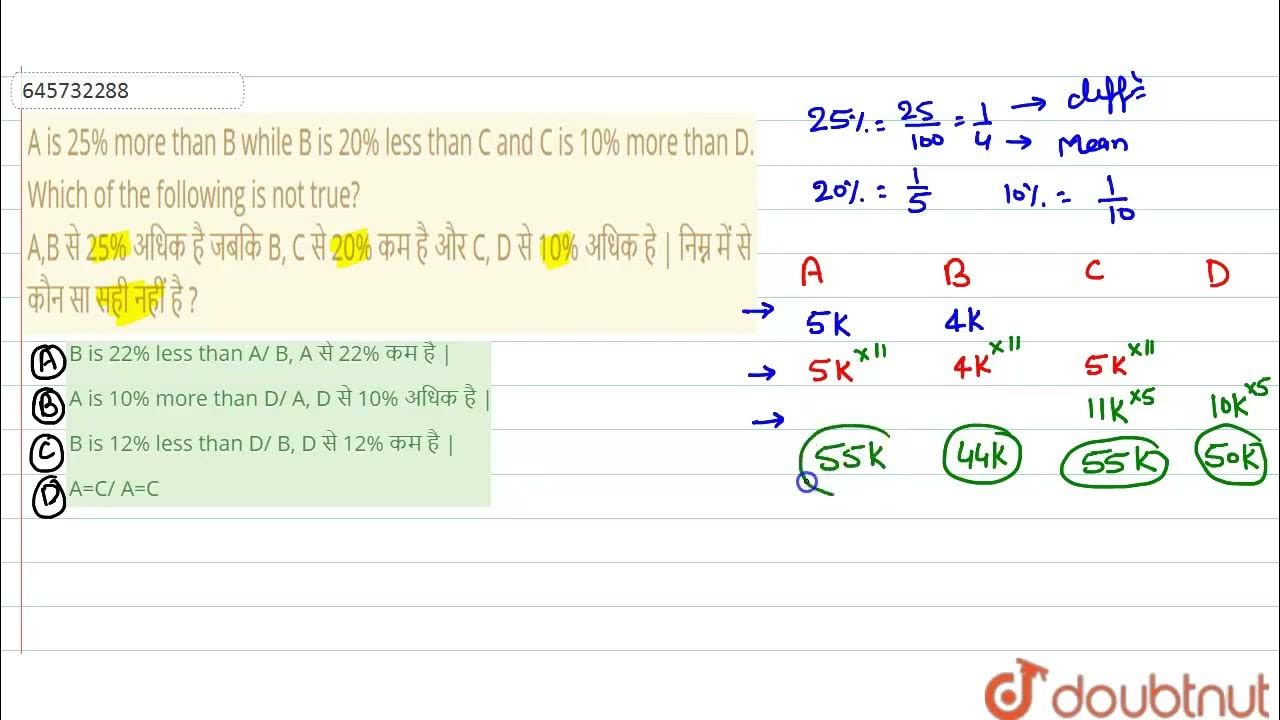 645732288
A is 25% more than B while B is 20% less than C and C is 10% more than D.
Which of the following is not true?
A,B से 25% अधिक है जबकि B, C से 20% कम है और C, D से 10% अधिक हे | निम्न में से
कौन सा सही नहीं है ?
A B is 22% less than A/ B, A से 22% कम है |
B A is 10% more than D/ A, D से 10% अधिक है |
C B is 12% less than D/ B, D से 12% कम है |
D A=C/ A=C
25% = 25/100 = 1/4 → diff
→ Mean
20% = 1/5 10% = 1/10
A B C D
→ 5K 4K
→ 5K×11 4K×11 5K×11
→ 11K×5 10K×5
55K 44K 55K 50K
doubtnut